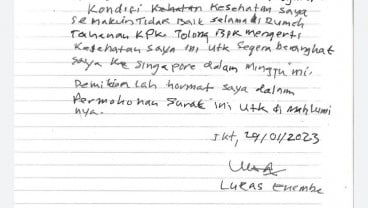 Kondisi Kehatan Kesehatan saya
semakin Tidak Baik selama di Rumah
Tahanan KPK. Tolong Bpk mengerti
Kesehatan saya ini utk segera berangkat
saya ke Singapore dalam minggu ini.
Demikian Lah hormat saya dalam
Permohonan Surat ini utk di maklumi
nya.
Jkt, 24/01/2023
Lukas Enembe